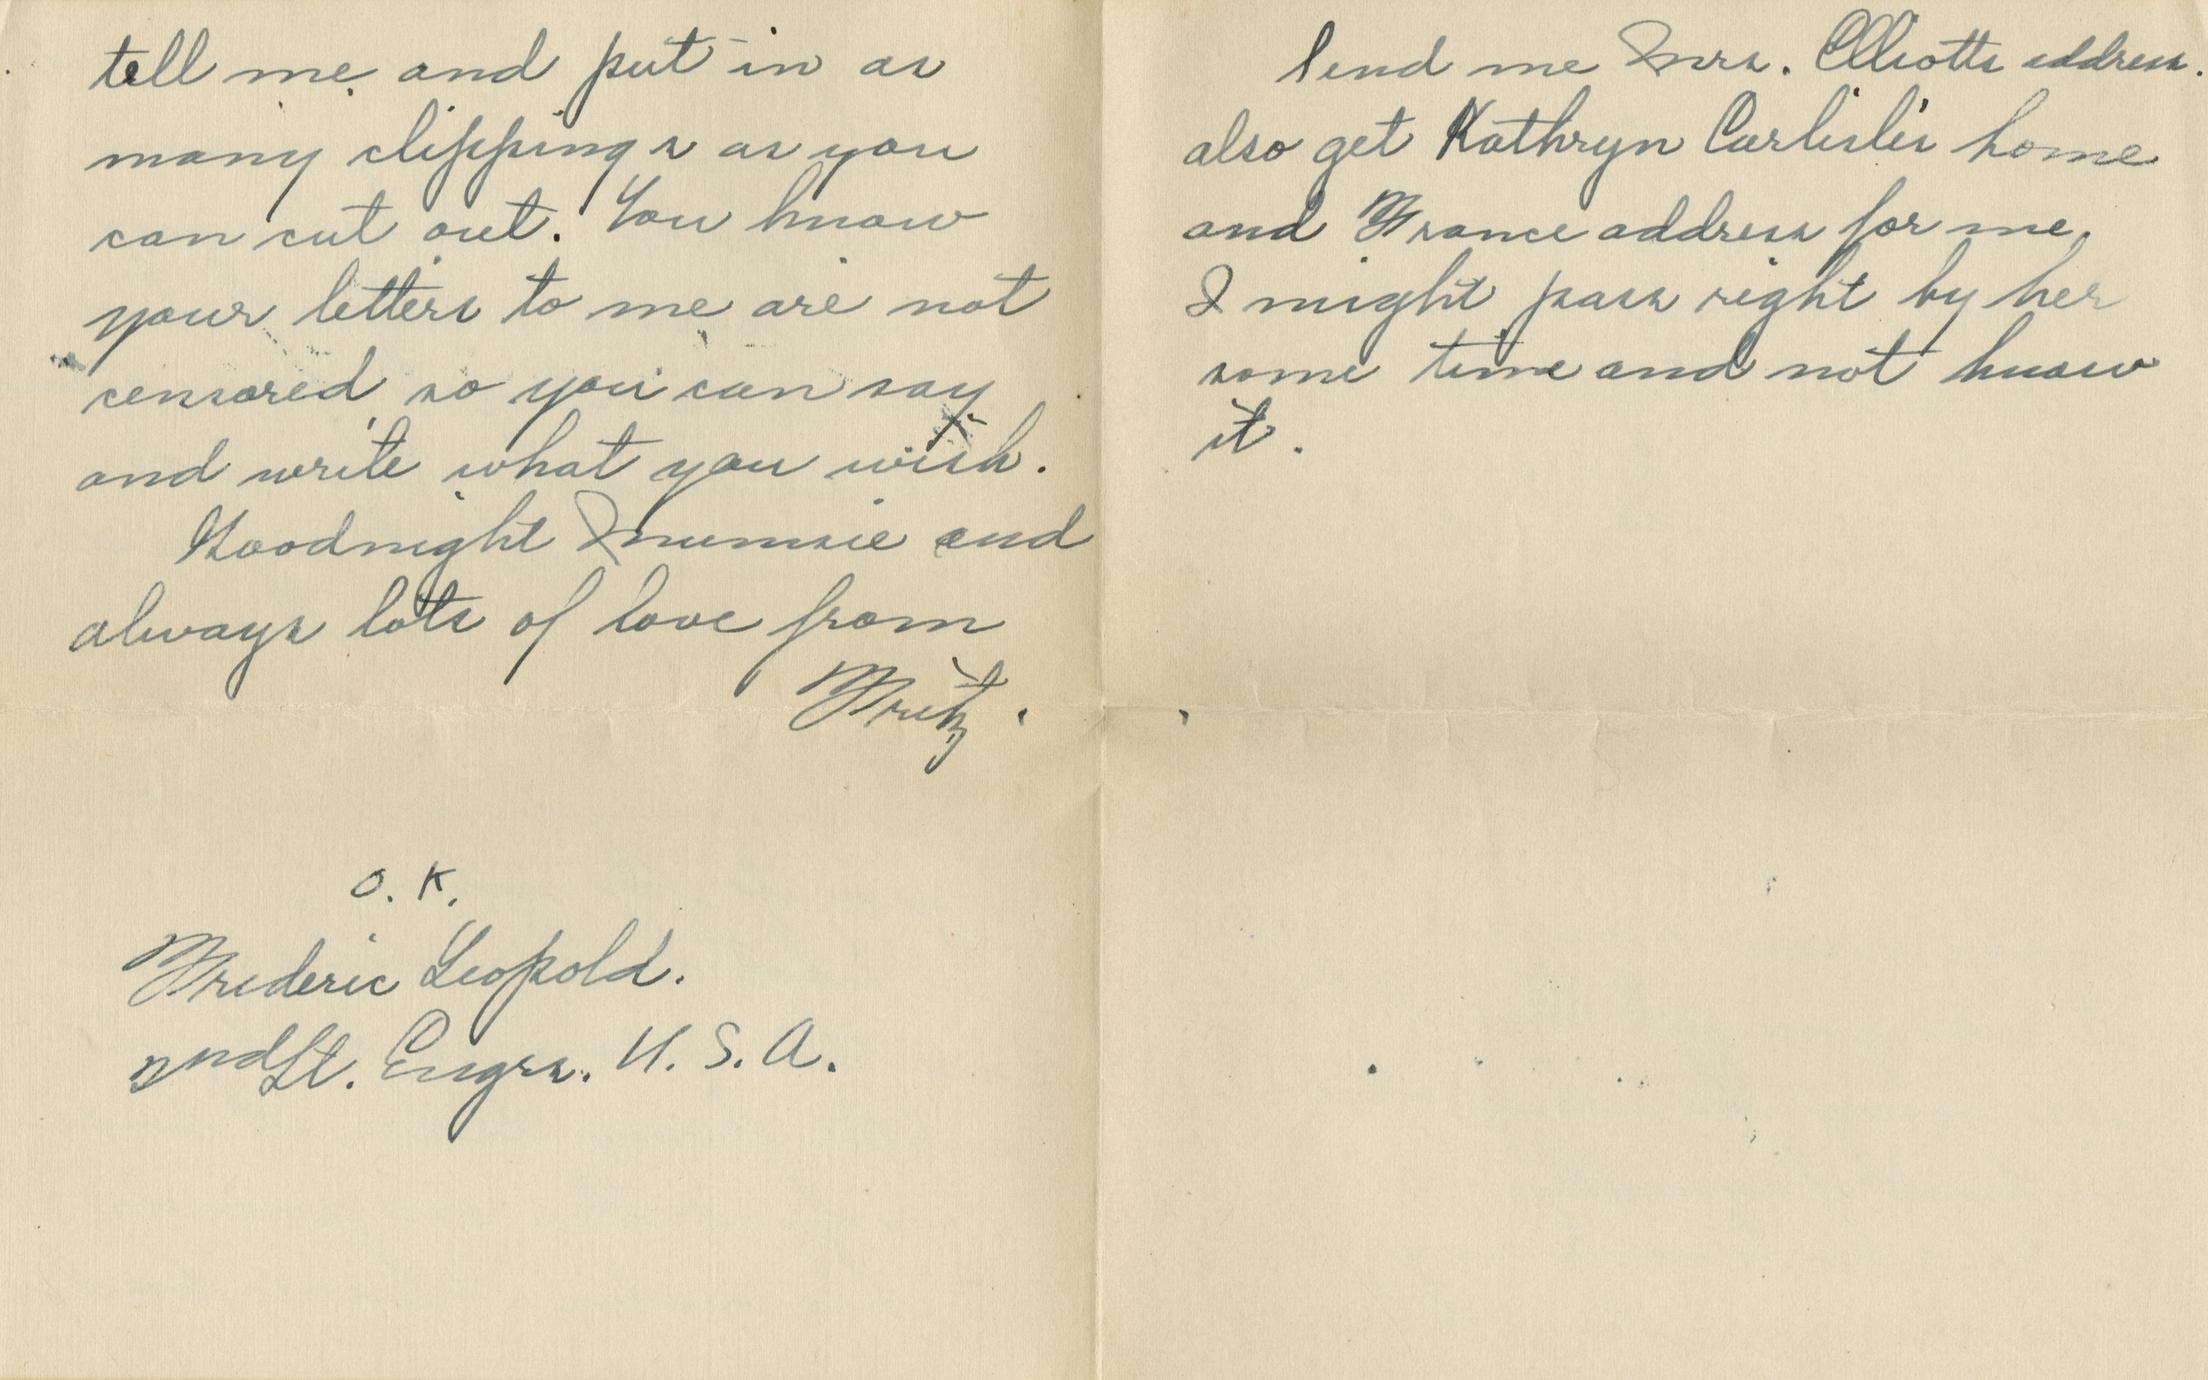 tell me and put in as
many clippings as you
can cut out. You know
your letters to me are not
censored so you can say
and write what you wish.
Goodnight Mumsie and
always lots of love from
Fritz.
O. K.
Frederic Leopold.
2nd Lt. Engrs. U. S. A.
Send me Mrs. Elliotts address.
also get Kathryn Carlisle's home
and France address for me.
I might pass right by her
some time and not know
it.